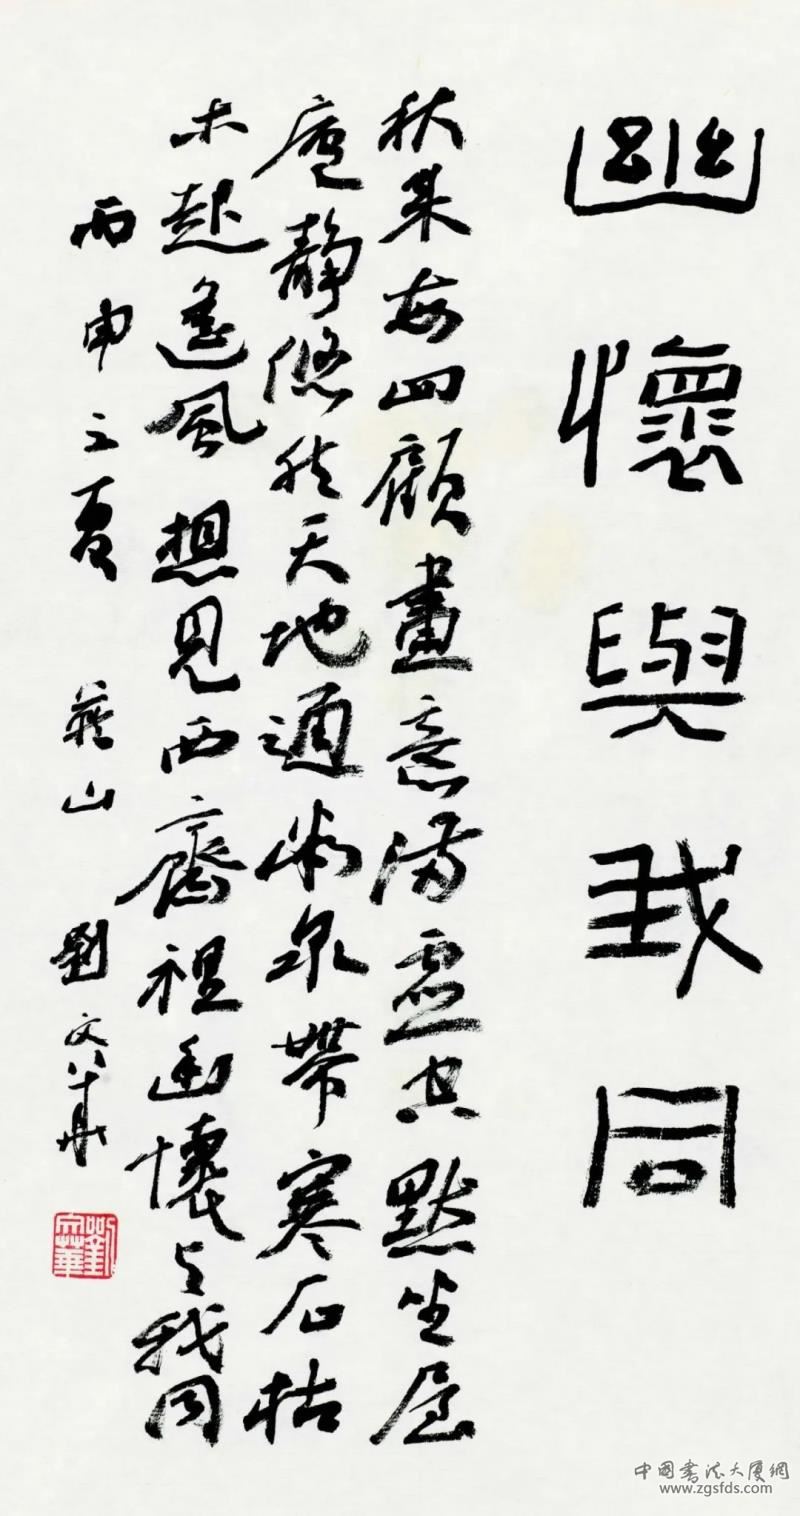 幽懷與我同
秋來每四顧畫意滿虛空默坐屋
廬靜悠然天地通泉帶寒石枯
木起遙風想見西齋裡幽懷与我同
丙申之夏 山 劉文華
劉文華
中国书法大厦網
www.zgsfds.com